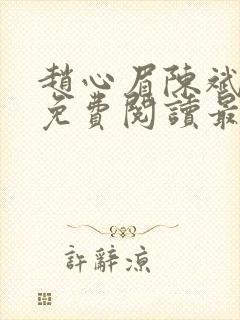 趙心眉陳斌
免費閱讀最
許辭涼